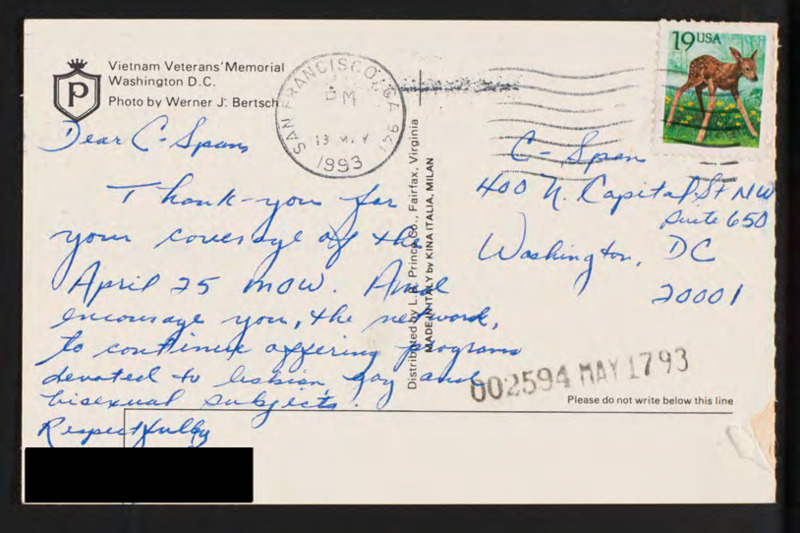 Vietnam Veterans' Memorial
Washington D.C.
Photo by Werner J. Bertsch
P
SAN FRANCISCO, CA 941
PM
13 MAY
1993
19 USA
Dear C-Span,
Thank-you for
your coverage of the
April 25 MOW. And
encourage you, the network,
to continue offering programs
devoted to lesbian, gay and
bisexual subjects.
Respectfully
Distributed by L.B. Prince Co., Fairfax, Virginia
MADE IN ITALY by KINA ITALIA, MILAN
C-Span
400 N. Capital St NW
Suite 650
Washington, DC
20001
002594 MAY 17 93
Please do not write below this line